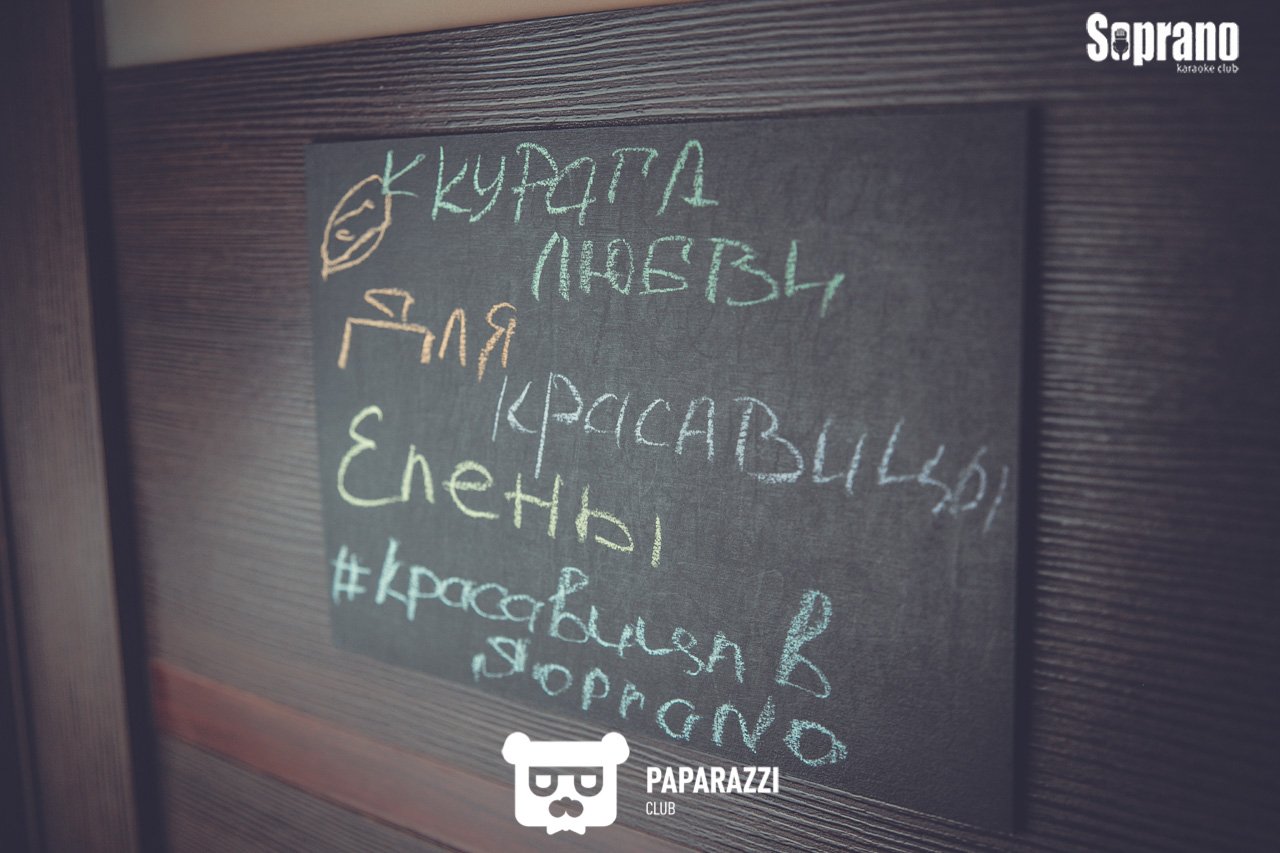 Soprano
karaoke club
К КУРАГА
ЛЮБВИ
ДЛЯ
КРАСАВИЦЫ
Елены
#красавица в
Soprano
PAPARAZZI
CLUB